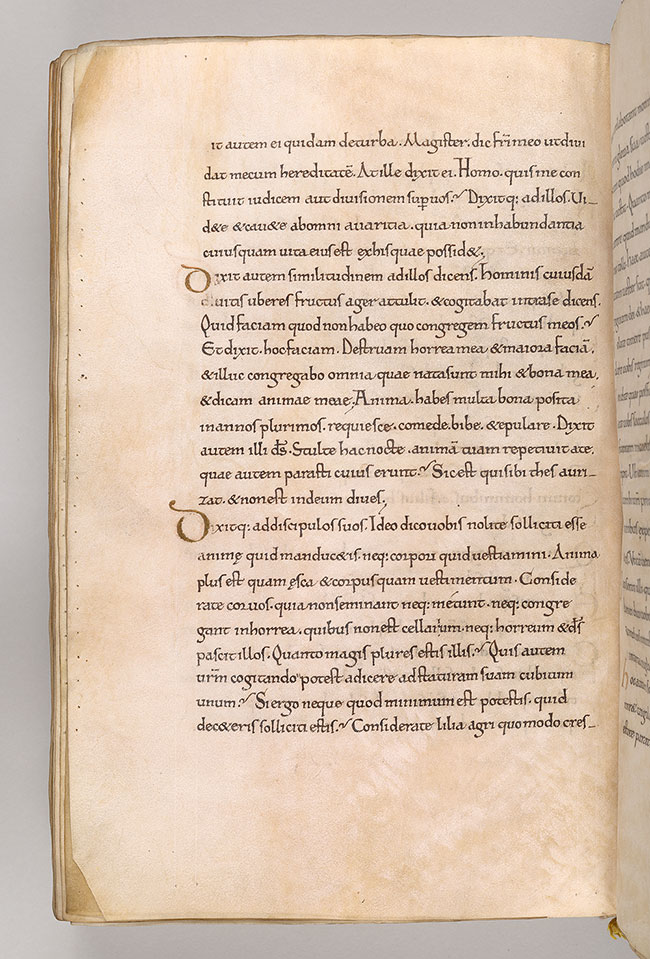 it autem ei quidam deturba. Magister. dic fr̄i meo ut diui
dat mecum hereditatē. At ille dixit ei. Homo. quis me con
stituit iudicem aut diuisionem sup uos. Dixitq: ad illos. Ui_
d&e & cau&e ab omni auaritia. quia non in habundantia
cuiusquam uita eius est ex his quae possid&.
Dixit autem similitudinem ad illos dicens. Hominis cuiusdā
diuitis uberes fructus ager attulit. & cogitabat intra se dicens.
Quid faciam quod non habeo quo congregem fructus meos.
Et dixit. hoc faciam. Destruam horrea mea & maiora faciā.
& illuc congregabo omnia quae nata sunt mihi & bona mea.
& dicam animae meae; Anima. habes multa bona posita
in annos plurimos. requiesce. comede. bibe. & epulare. Dixit
autem illi d̄s. Stulte hac nocte. animā tuam repetiuit a te.
quae autem parasti cuius erunt. Sic est qui sibi thesauri_
zat. & non est in deum diues.
Dixitq: ad discipulos suos. Ideo dico uobis nolite solliciti esse
animę quid manduc&is. neq: corpori quid uestiamini. Anima
plus est quam ęsca & corpus quam uestimentum. Conside
rate coruos. quia non seminant neq: metunt. neq: congre
gant in horrea. quibus non est cellarium. neq: horreum & d̄s
pascit illos. Quanto magis plures estis illis. Quis autem
ur̄m cogitando potest adicere ad staturam suam cubitum
unum. Si ergo neque quod minimum est potestis. quid
de c&eris solliciti estis. Considerate lilia agri quomodo cres_